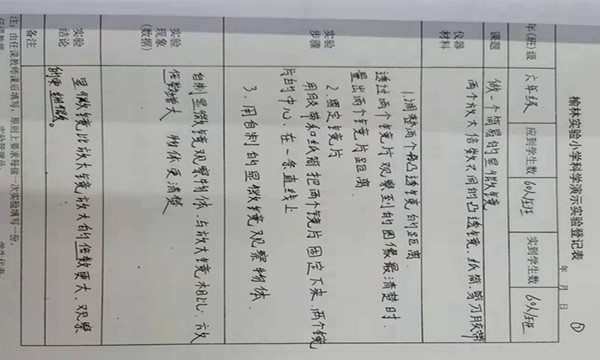 榆林实验小学科学演示实验登记表
年 月 日
①
年(班)级 六年级 应到学生数 60人/班 实到学生数 60人/班
课题 做一个简易的显微镜
仪器材料 两个放大倍数不同的凸透镜、纸筒、剪刀、胶带
实验步骤
1.调整两个凸透镜的距离
透过两个镜片观察到的图像最清楚时,
量出两个镜片距离
2.固定镜片
用胶带和纸筒把两个镜片固定下来,两个镜
片的中心,在一条直线上
3、用自制的显微镜观察物体.
实验现象(数据)
自制显微镜观察物体,与放大镜相比,放大
倍数增大,物体更清楚
实验结论
显微镜比放大镜放大的倍数更大,观察
的更细微。
备注
注:由任课教师课后填写,原则上要求每做一次实验填写一份。